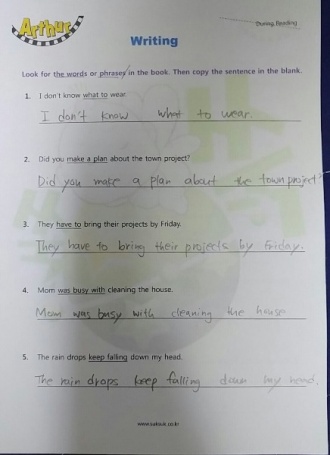 Arthur
During Reading
Writing
Look for the words or phrases in the book. Then copy the sentence in the blank.
1. I don't know what to wear.
I don't know what to wear.
2. Did you make a plan about the town project?
Did you make a plan about the town project?
3. They have to bring their projects by Friday.
They have to bring their projects by Friday.
4. Mom was busy with cleaning the house.
Mom was busy with cleaning the house
5. The rain drops keep falling down my head.
The rain drops keep falling down my head.